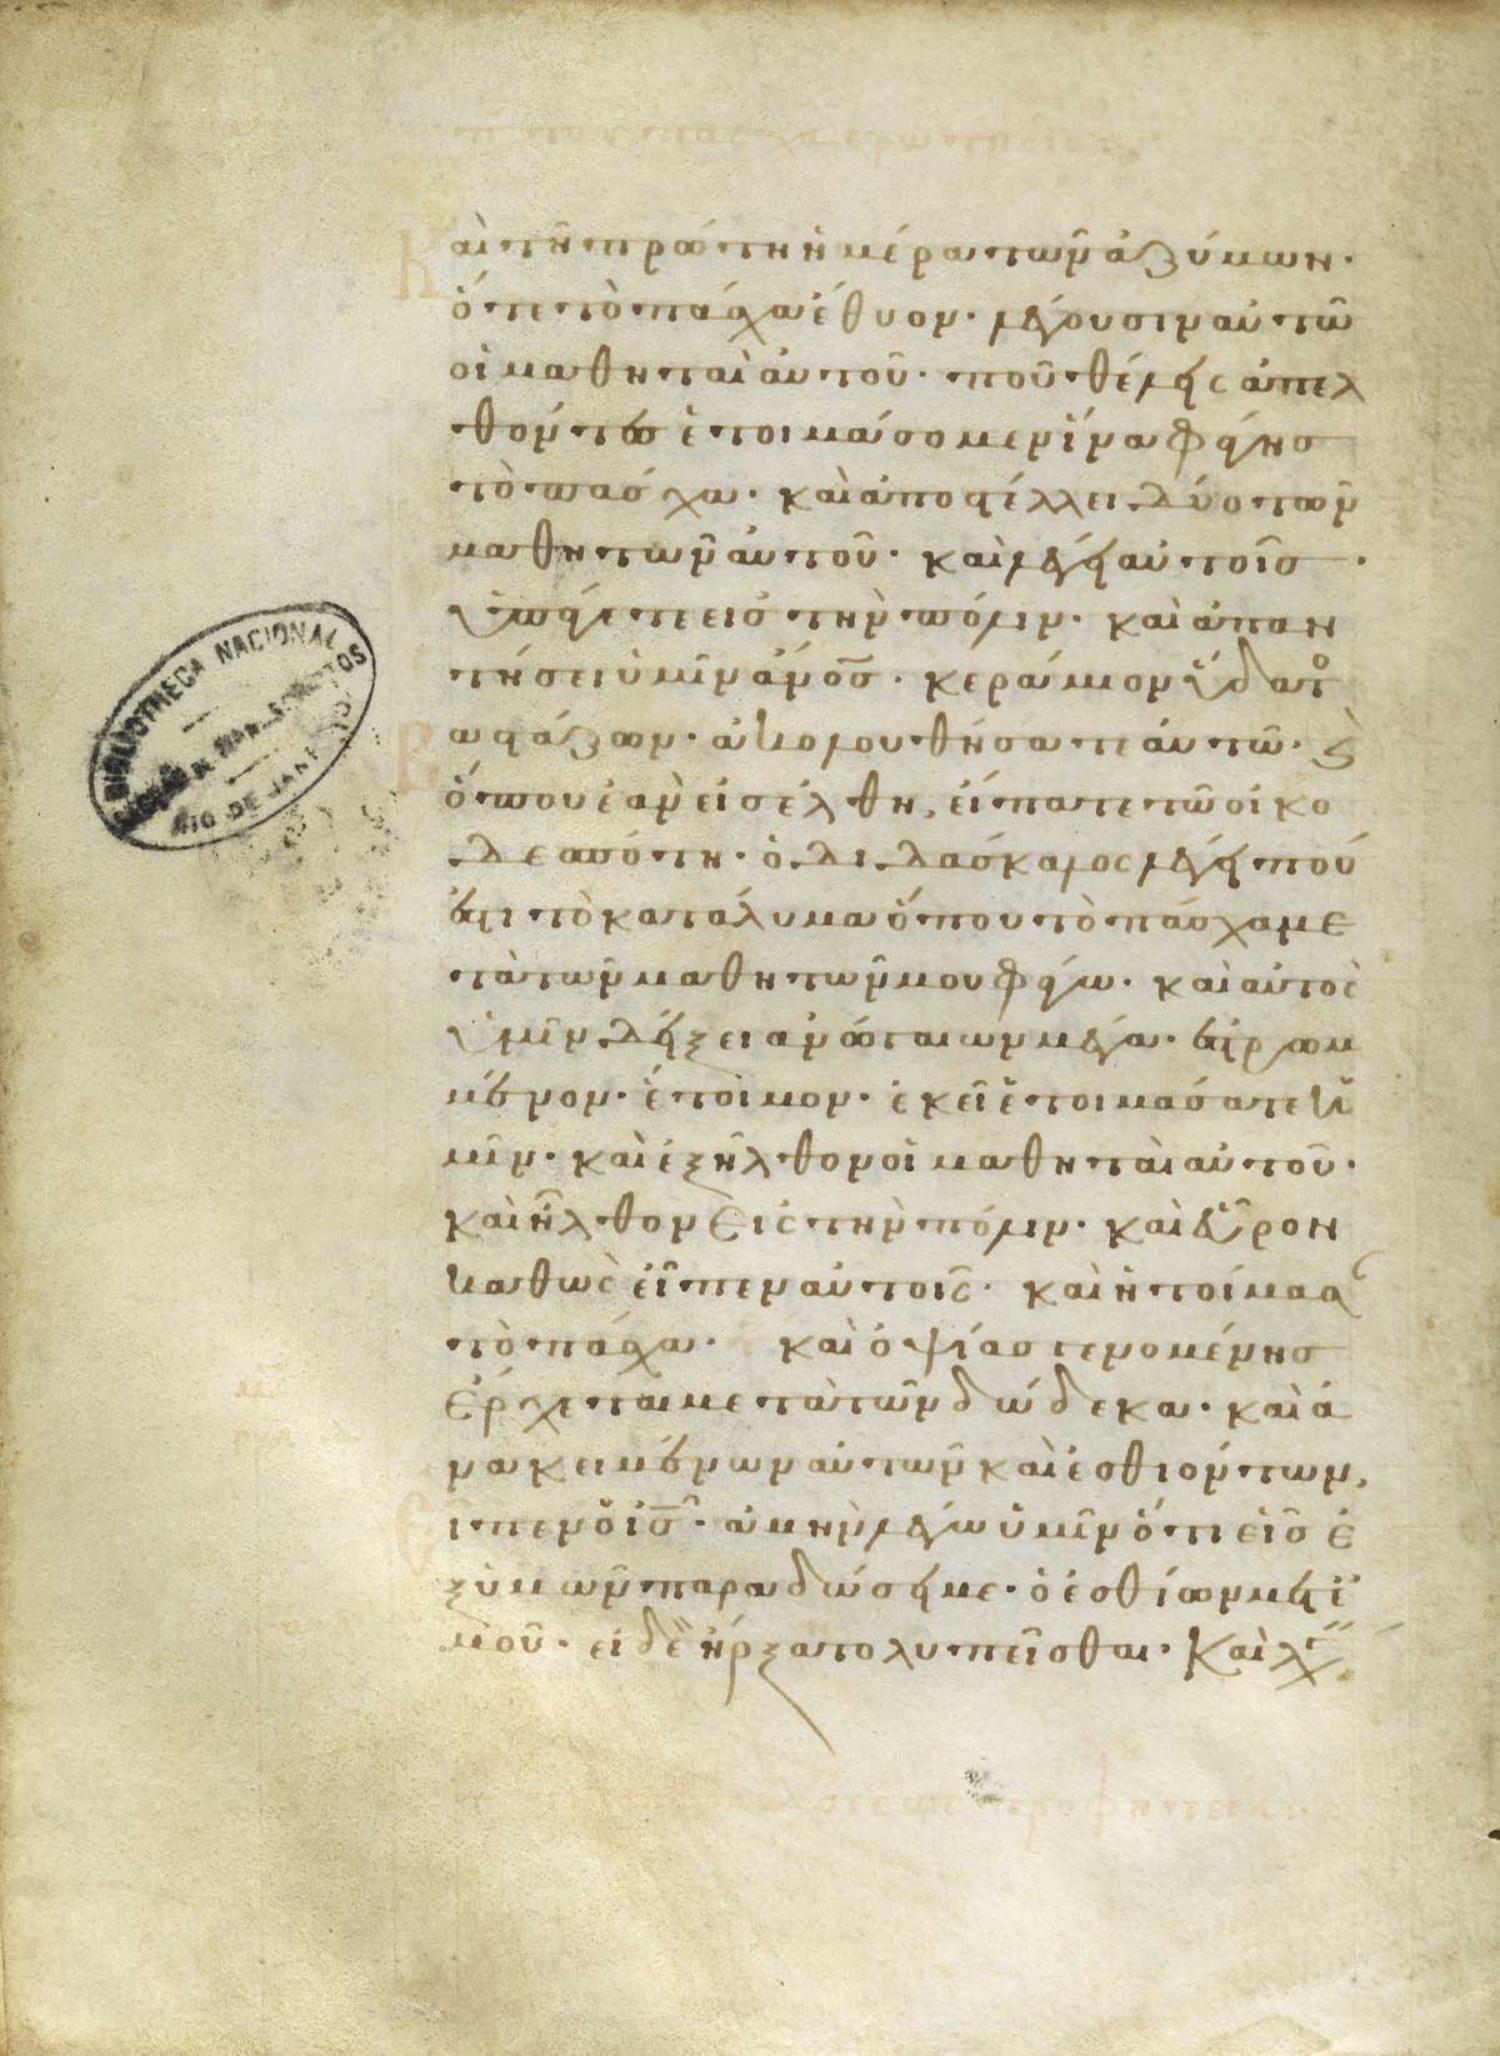 Καὶ τῆ πρώτη ἡμέρα τῶν ἀζύμων·
ὅτε τὸ πάσχα ἔθυον· λέγουσιν αὐτῶ
οἱ μαθηταὶ αὐτοῦ· ποῦ θέλεις ἀπελ
θόντες ἑτοιμάσομεν ἵνα φάγης
τὸ πάσχα· καὶ ἀποστέλλει δύο τῶν
μαθητῶν αὐτοῦ· καὶ λέγει αὐτοῖς·
ὑπάγετε εἰς τὴν πόλιν· καὶ ἀπαν
τήσει ὑμῖν ἄνος· κεράμιον ὕδατο
βαστάζων· ἀκολουθήσατε αὐτῶ· καὶ
ὅπου ἐὰν εἰσέλθη, εἴπατε τῶ οἰκο
δεσπότη· ὁ διδάσκαλος λέγει ποῦ
ἐστι τὸ κατάλυμα ὅπου τὸ πάσχα με
τὰ τῶν μαθητῶν μου φάγω· καὶ αὐτὸς
ὑμῖν δείξει ἀνώγαιων μέγα· ἐστρωμ
μένον· ἕτοιμον· ἐκεῖ ἑτοιμάσατε ὑ
μῖν· καὶ ἐξῆλθον οἱ μαθηταὶ αὐτοῦ·
καὶ ἦλθον εἰς τὴν πόλιν· καὶ εὗρον
καθὼς εἶπεν αὐτοῖς· καὶ ἡτοίμασ
τὸ πάσχα· καὶ ὀψίας γενομένης
ἔρχεται μετὰ τῶν δώδεκα· καὶ ἀ
νακειμένων αὐτῶν καὶ ἐσθιόντων,
εἶπεν ὁ ἰς· ἀμὴν λέγω ὑμῖν ὅτι εἷς ἐ
ξ ὑμῶν παραδώσει με· ὁ ἐσθίων μετ ἐ
μοῦ· οἱ δὲ ἤρξατο λυπεῖσθαι· Καὶ λέγ
BIBLIOTHECA NACIONAL
RIO DE JANEIRO